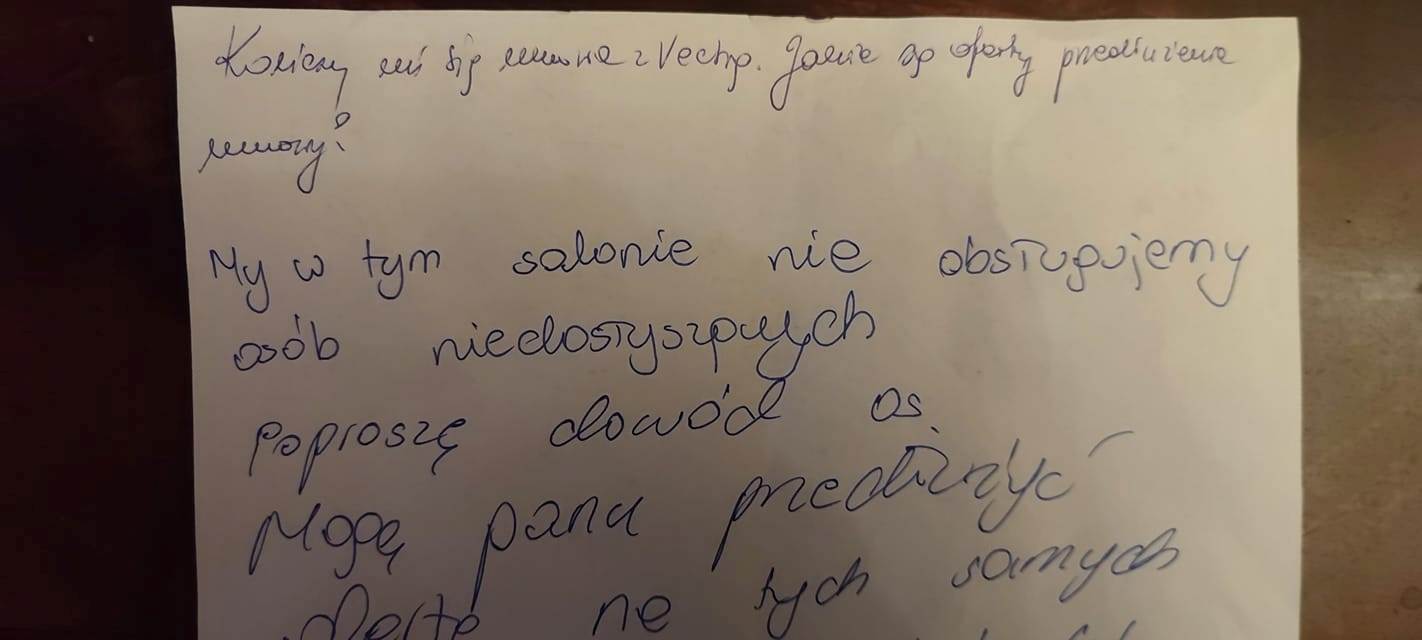 Kończy mi się umowa z Vectrą. Jakie są oferty przedłużenia
umowy?
My w tym salonie nie obsługujemy
osób niedosłyszących
Poproszę dowód os.
Mogę panu przedłużyć
ofertę na tych samych